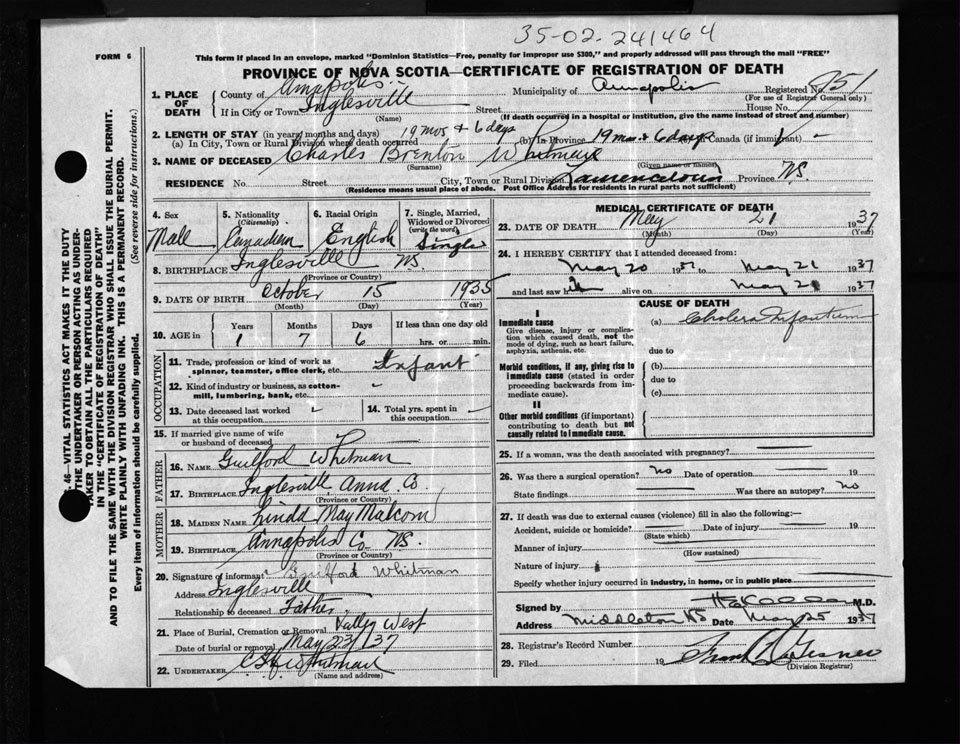 35-02-241464
FORM 6
This form if placed in an envelope, marked "Dominion Statistics—Free, penalty for improper use $300," and properly addressed will pass through the mail "FREE"
PROVINCE OF NOVA SCOTIA—CERTIFICATE OF REGISTRATION OF DEATH
1. PLACE OF DEATH County of Annapolis Municipality of Annapolis Registered No. 951
(For use of Registrar General only)
If in City or Town Inglesville Street House No.
(Name) (If death occurred in a hospital or institution, give its name instead of street and number)
2. LENGTH OF STAY (in years, months and days)
(a) In City, Town or Rural Division where death occurred 19 mos & 6 days (b) In Province 19 mos & 6 days Canada (if immigrant) -
3. NAME OF DECEASED Charles Brenton Whitman
(Surname) (Given name or names)
RESIDENCE No. Street City, Town or Rural Division Lawrencetown Province N.S.
(Residence means usual place of abode. Post Office Address for residents in rural parts not sufficient)
4. Sex Male
5. Nationality (Citizenship) Canadian
6. Racial Origin English
7. Single, Married, Widowed or Divorced (write the word) Single
8. BIRTHPLACE Inglesville N.S.
(Province or Country)
9. DATE OF BIRTH October 15 1935
(Month) (Day) (Year)
10. AGE in Years Months Days If less than one day old
1 7 6 hrs. or min.
OCCUPATION
11. Trade, profession or kind of work as spinner, teamster, office clerk, etc. Infant
12. Kind of industry or business, as cotton-mill, lumbering, bank, etc. "
13. Date deceased last worked at this occupation
14. Total yrs. spent in this occupation
15. If married give name of wife or husband of deceased
FATHER
16. NAME Guilford Whitman
17. BIRTHPLACE Inglesville Anna. Co.
(Province or Country)
MOTHER
18. MAIDEN NAME Linda May Malcom
19. BIRTHPLACE Annapolis Co. N.S.
(Province or Country)
20. Signature of informant Guilford Whitman
Address Inglesville
Relationship to deceased Father
21. Place of Burial, Cremation or Removal Valley West
Date of burial or removal May 23/37
22. UNDERTAKER Whitman
(Name and address)
MEDICAL CERTIFICATE OF DEATH
23. DATE OF DEATH May 21 1937
(Month) (Day) (Year)
24. I HEREBY CERTIFY that I attended deceased from:
May 20 1937 to May 21 1937
and last saw him alive on May 21 1937
CAUSE OF DEATH
I
Immediate cause
Give disease, injury or complication which caused death, not the mode of dying, such as heart failure, asphyxia, asthenia, etc.
(a) Cholera Infantum
due to
Morbid conditions, if any, giving rise to immediate cause (stated in order proceeding backwards from immediate cause).
(b)
due to
(c)
II
Other morbid conditions (if important) contributing to death but not causally related to immediate cause.
25. If a woman, was the death associated with pregnancy?
26. Was there a surgical operation? no Date of operation 19
State findings Was there an autopsy? no
27. If death was due to external causes (violence) fill in also the following:—
Accident, suicide or homicide? Date of injury 19
(State which)
Manner of injury
(How sustained)
Nature of injury
Specify whether injury occurred in industry, in home, or in public place
Signed by M.D.
Address Middleton NS Date May 25 1937
28. Registrar's Record Number
29. Filed 19
(Division Registrar)
46—VITAL STATISTICS ACT MAKES IT THE DUTY
THE UNDERTAKER OR PERSON ACTING AS UNDER-
TAKER TO OBTAIN ALL THE PARTICULARS REQUIRED
IN THE "CERTIFICATE OF REGISTRATION OF DEATH"
AND TO FILE THE SAME WITH THE DIVISION REGISTRAR WHO SHALL ISSUE THE BURIAL PERMIT.
WRITE PLAINLY WITH UNFADING INK. THIS IS A PERMANENT RECORD.
Every item of information should be carefully supplied. (See reverse side for instructions.)